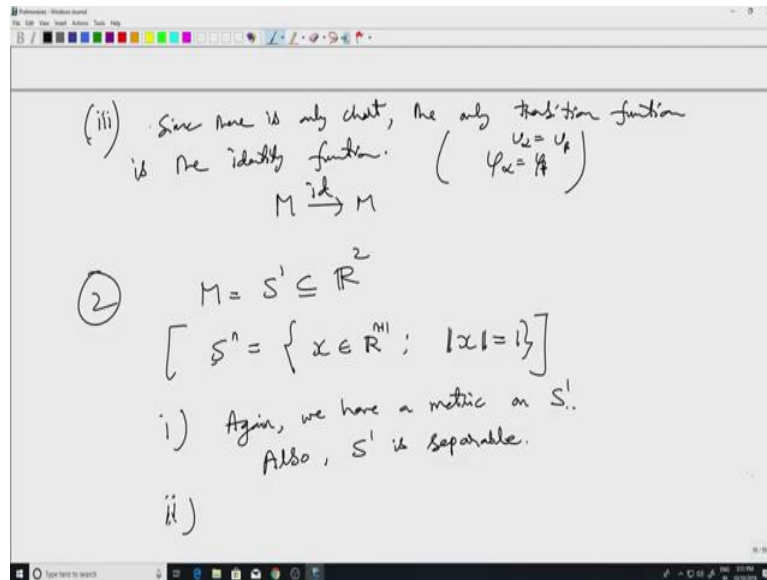 Preliminaries - Windows Journal
File Edit View Insert Actions Tools Help
(iii) Since there is only chart, the only transition funtion
is the identity function. ( U_α = U_β
φ_α = φ_β )
M →^{id} M
② M = S^1 ⊆ ℝ^2
[ S^n = { x ∈ ℝ^{n+1} ; |x| = 1 } ]
i) Again, we have a metric on S^1.
Also, S^1 is separable.
ii)
Type here to search